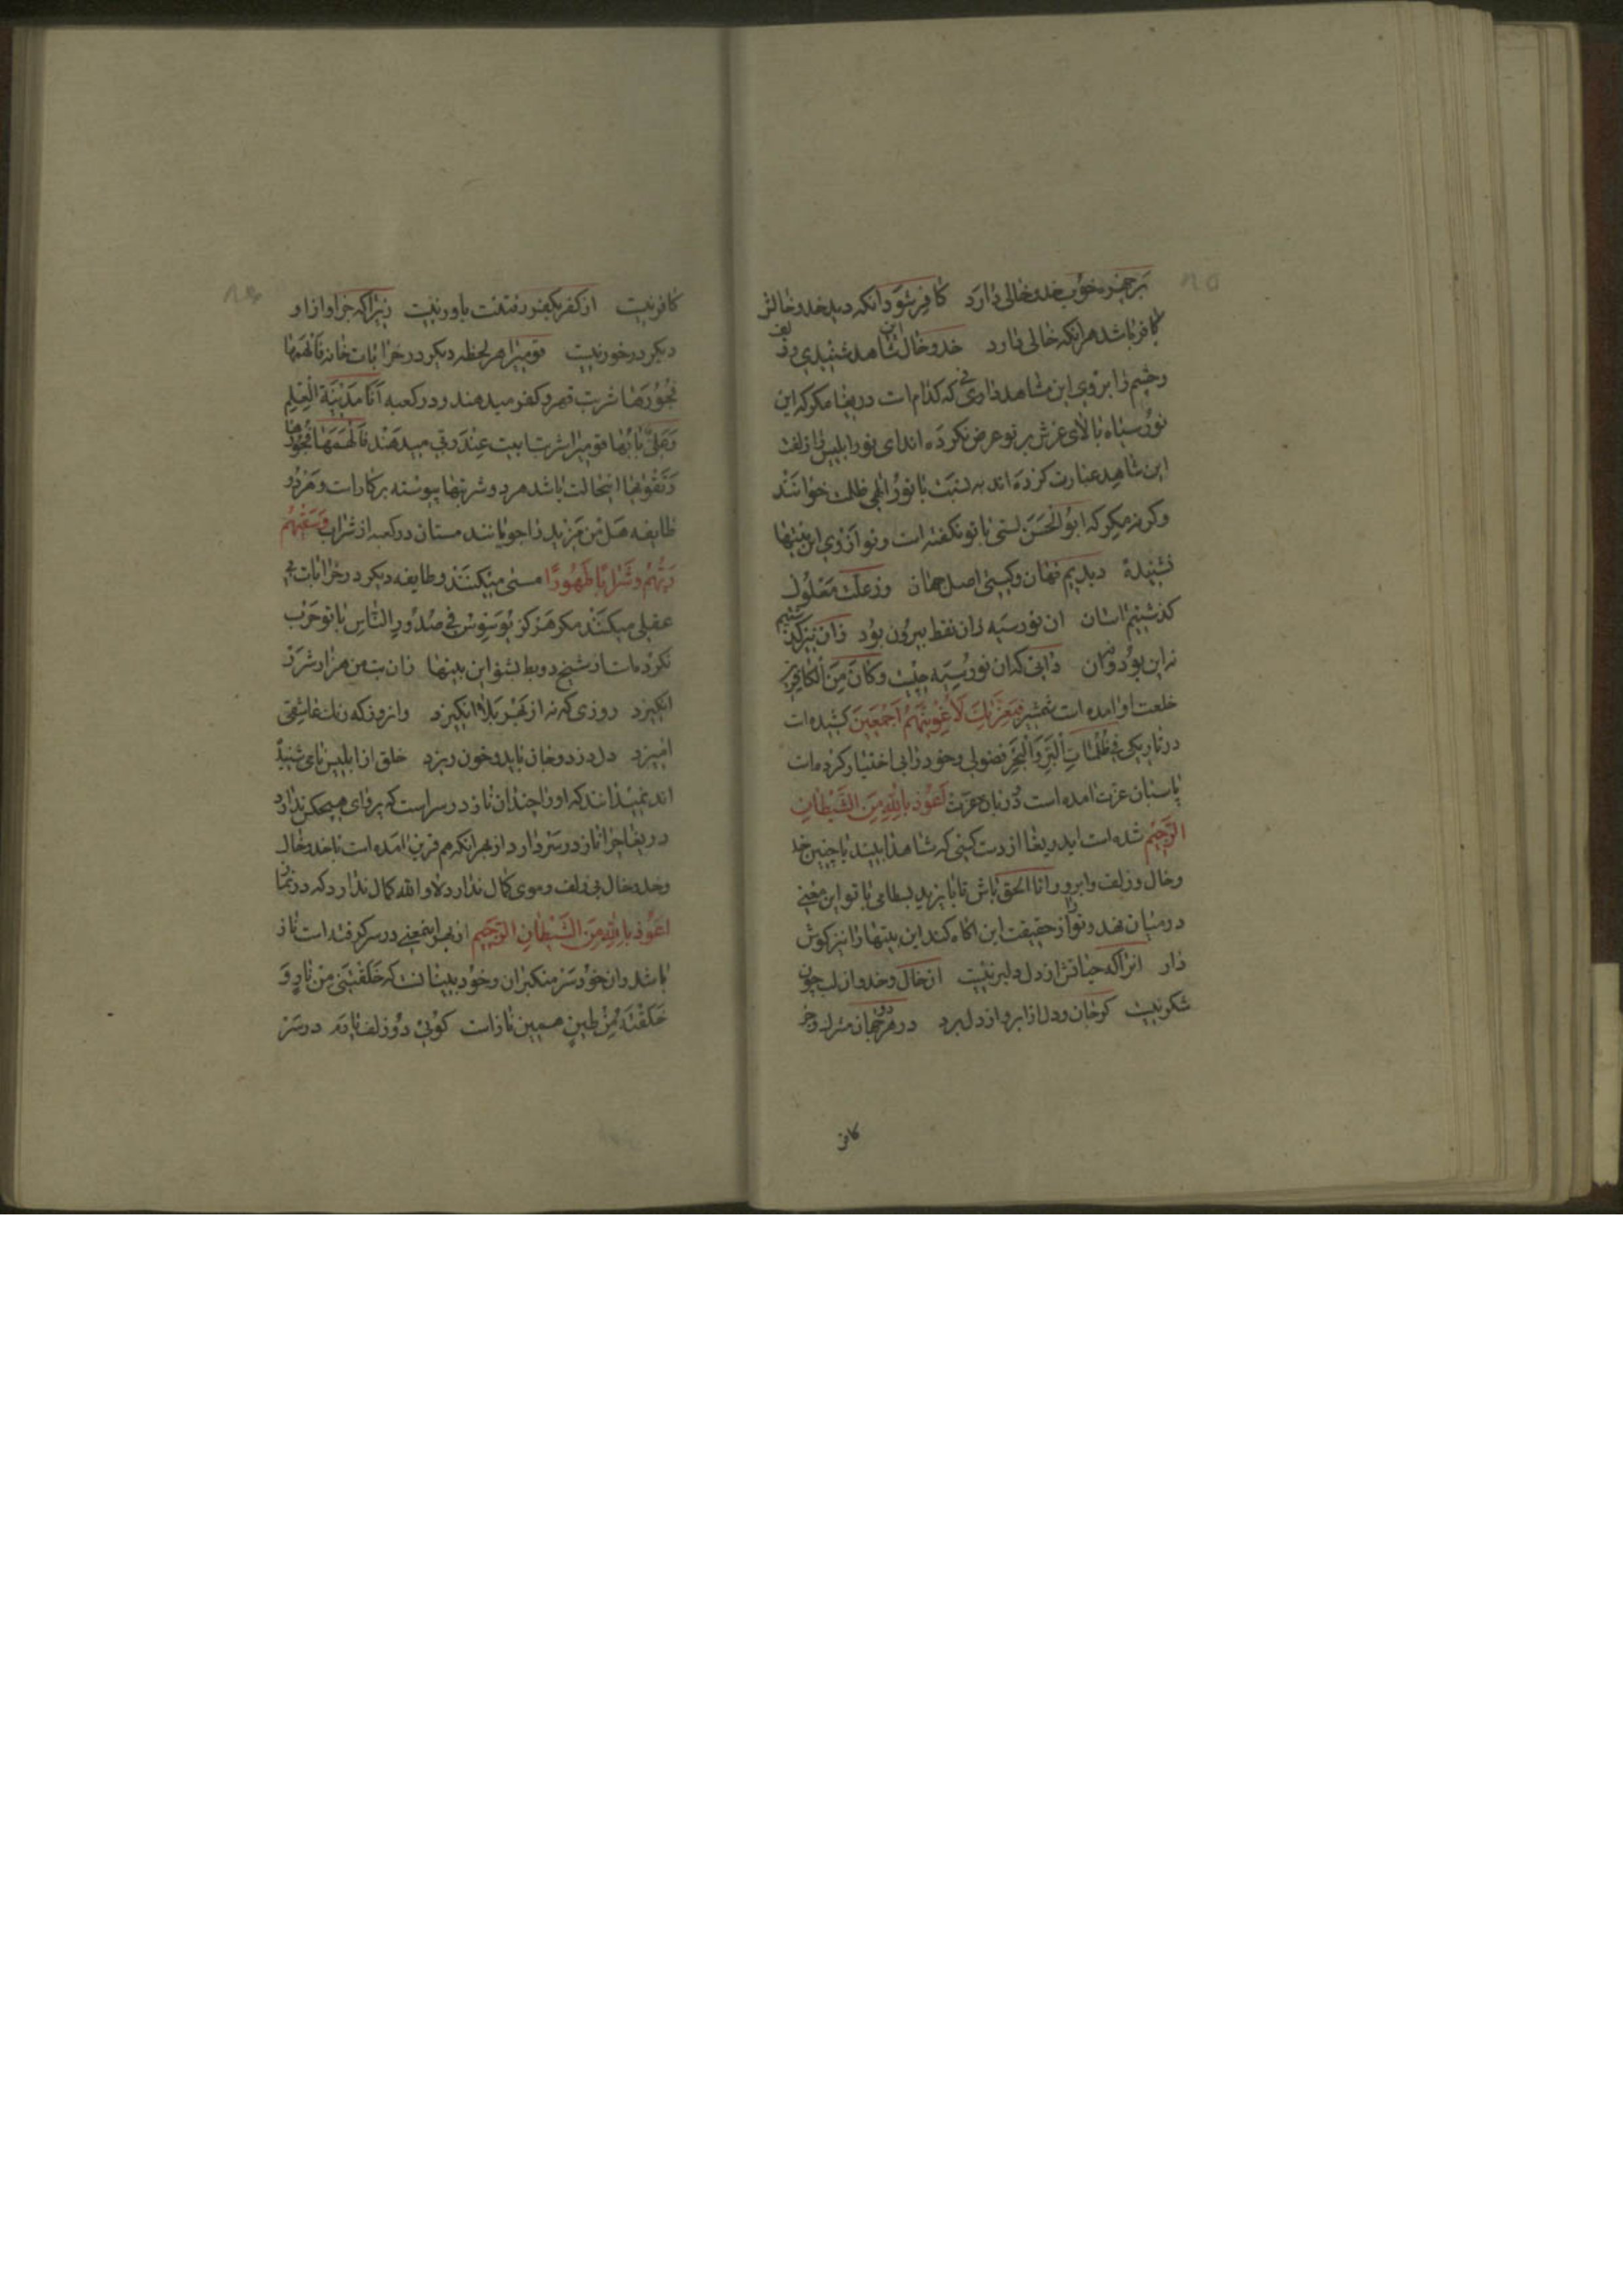 بر چهره خوب خد و خالی دارد کافر شود آنکه دید خد و خالش
کافر باشد هر آنکه خالی دارد خد و خال این شاهد شنیدی زلف
و چشم و ابروی این شاهد دانی که کدام است دریغا مگر که این
نور سیاه بالای عرش بر تو عرض نکرده اند ای نور ابلیس را زلف
این شاهد عبارت کرده اند به نسبت با نور الهی ظلمت خوانند
و گرنه مگر که ابوالحسن بستی با تو نگفته است و تو از وی این بیتها
نشنیدهٔ دیدیم نهان و گیتی اصل جهان وز علت معلول
گذشتیم اسان ان نور سیه زان نقط بیرون بود زان نیز گذشتیم
نه این بود و نه آن دانی که ان نور سیه چیست وَكَانَ مِنَ الْكَافِرِينَ
خلعت او امده است شمشیر فَبِعِزَّتِكَ لَأُغْوِيَنَّهُمْ أَجْمَعِينَ کشیده است
در تاریکی فِي ظُلُمَاتِ الْبَرِّ وَالْبَحْرِ فضولی و خود را بی اختیار کرده است
پاسبان عزت امده است دربان حضرت اَعُوذُ بِاللّٰهِ مِنَ الشَّيْطَانِ
الرَّجِيم شده است ای دریغا از دست کسی که شاهد را بیند با چنین خد
و خال و زلف و ابرو و انا الحق باش تا بایزید بسطامی با تو این معنی
در میان نهد و تو را از حقیقت این اگاه کند این بیتها را نیز گوش
دار انرا که حیاتش از دل دلبر نیست از خال و خد و از لب چون
شکر نیست کو جان و دل از ابرو از دل ببرد در هر دو جهان مشرک و جز
کافر
کافر نیست از کفر بکفر رفتنت باور نیست زیرا که جز او از او
دیگر در خور نیست قومی را هر لحظه دیگر در خرابات خانه فَأَلْهَمَهَا
فُجُورَهَا شربت قهر و کفر میدهند و در کعبه أَنَا مَدِينَةُ الْعِلْمِ
وَعَلِيٌّ بَابُهَا قومی را شربت ابیت عِنْدَ رَبِّي میدهند فَأَلْهَمَهَا فُجُورَهَا
وَتَقْوَيهَا اینحالت باشد هر دو شربتها پیوسته بر کار است و هر دو
طایفه هَلْ مِنْ مَزِيد را جویانند مستان در کعبه از شراب وَسَقَيهُمْ
رَبُّهُمْ شَرَابًا طَهُورًا مستی میکنند و طایفه دیگر در خرابات بی
عقلی میکنند مگر هرگز يُوَسْوِسُ فِي صُدُورِ النَّاسِ با تو حرب
نکرده است از شیخ دو بط بشنو این بیتها
انگیزد روزی که نه از بهر بلا انگیزد وانروز که رنگ عاشقی
امیزد دل دزدد و جان رباید و خون ریزد خلق از ابلیس نامی شنیده
اند نمیدانند که او را چندان ناز در سر است که پروای هیچکس ندارد
دریغا چرا ناز در سر دارد از بهر انکه هم قرین امده است با خد و خال
و خد و خال بی زلف و موی کمال ندارد لا و الله کمال ندارد که در نماز
اَعُوذُ بِاللّٰهِ مِنَ الشَّيْطَانِ الرَّجِيمِ از بهر اینمعنی در سر گرفته است ناز
باشد و ان خود سر متکبران و خود بینان است که خَلَقْتَنِي مِنْ نَارٍ وَ
خَلَقْتَهُ مِنْ طِينٍ همین ناز است گوئی دو زلف یارم در سر